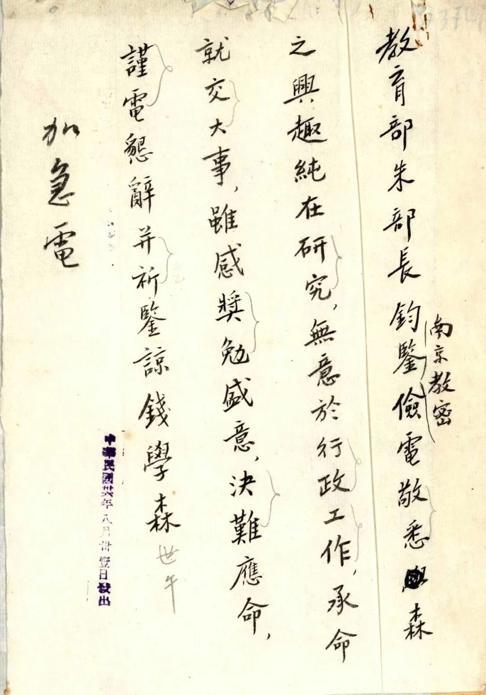 南京教密
教育部朱部長鈞鑒儉電敬悉森
之興趣純在研究，無意於行政工作，承命
就交大事，雖感獎勉盛意，決難應命，
謹電懇辭并祈鑒諒錢學森 世午
中華民國卅六年八月卅壹日發出
加急電